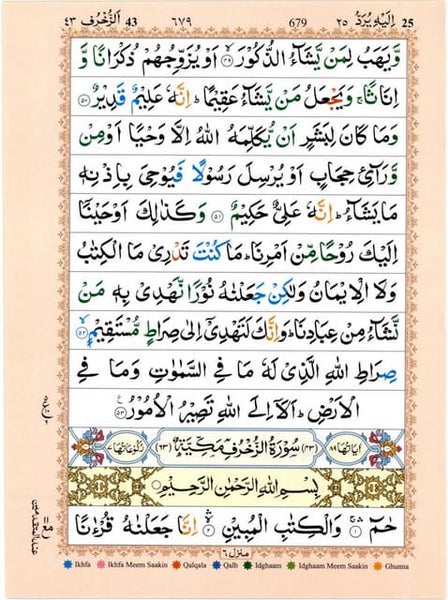 اَلزُّخْرُف ٤٣ 43 ٦٧٩ 679 اِلَيْهِ يُرَدُّ ٢٥ 25
وَّيَهَبُ لِمَنْ يَّشَآءُ الذُّكُوْرَ ۙ﴿۴۹﴾ اَوْ يُزَوِّجُهُمْ ذُكْرَانًا وَّ
اِنَاثًا ۚ وَيَجْعَلُ مَنْ يَّشَآءُ عَقِيْمًا ؕ اِنَّهٗ عَلِيْمٌ قَدِيْرٌ ﴿۵۰﴾
وَمَا كَانَ لِبَشَرٍ اَنْ يُّكَلِّمَهُ اللّٰهُ اِلَّا وَحْيًا اَوْ مِنْ
وَّرَآئِ حِجَابٍ اَوْ يُرْسِلَ رَسُوْلًا فَيُوْحِيَ بِاِذْنِهٖ
مَا يَشَآءُ ؕ اِنَّهٗ عَلِيٌّ حَكِيْمٌ ﴿۵۱﴾ وَكَذٰلِكَ اَوْحَيْنَاۤ
اِلَيْكَ رُوْحًا مِّنْ اَمْرِنَا ؕ مَا كُنْتَ تَدْرِيْ مَا الْكِتٰبُ
وَلَا الْاِيْمَانُ وَلٰكِنْ جَعَلْنٰهُ نُوْرًا نَّهْدِيْ بِهٖ مَنْ
نَّشَآءُ مِنْ عِبَادِنَا ؕ وَاِنَّكَ لَتَهْدِيْۤ اِلٰى صِرَاطٍ مُّسْتَقِيْمٍ ﴿۵۲﴾
صِرَاطِ اللّٰهِ الَّذِيْ لَهٗ مَا فِي السَّمٰوٰتِ وَمَا فِي
الْاَرْضِ ؕ اَلَاۤ اِلَى اللّٰهِ تَصِيْرُ الْاُمُوْرُ ﴿۵۳﴾
اٰيَاتُهَا ٨٩ (٤٣) سُوْرَةُ الزُّخْرُفِ مَكِّيَّةٌ (٦٣) رُكُوْعَاتُهَا ٧
بِسْمِ اللّٰهِ الرَّحْمٰنِ الرَّحِيْمِ
حٰمٓ ﴿۱﴾ وَالْكِتٰبِ الْمُبِيْنِ ﴿۲﴾ اِنَّا جَعَلْنٰهُ قُرْءٰنًا
منزل ٦
Ikhfa Ikhfa Meem Saakin Qalqala Qalb Idghaam Idghaam Meem Saakin Ghunna